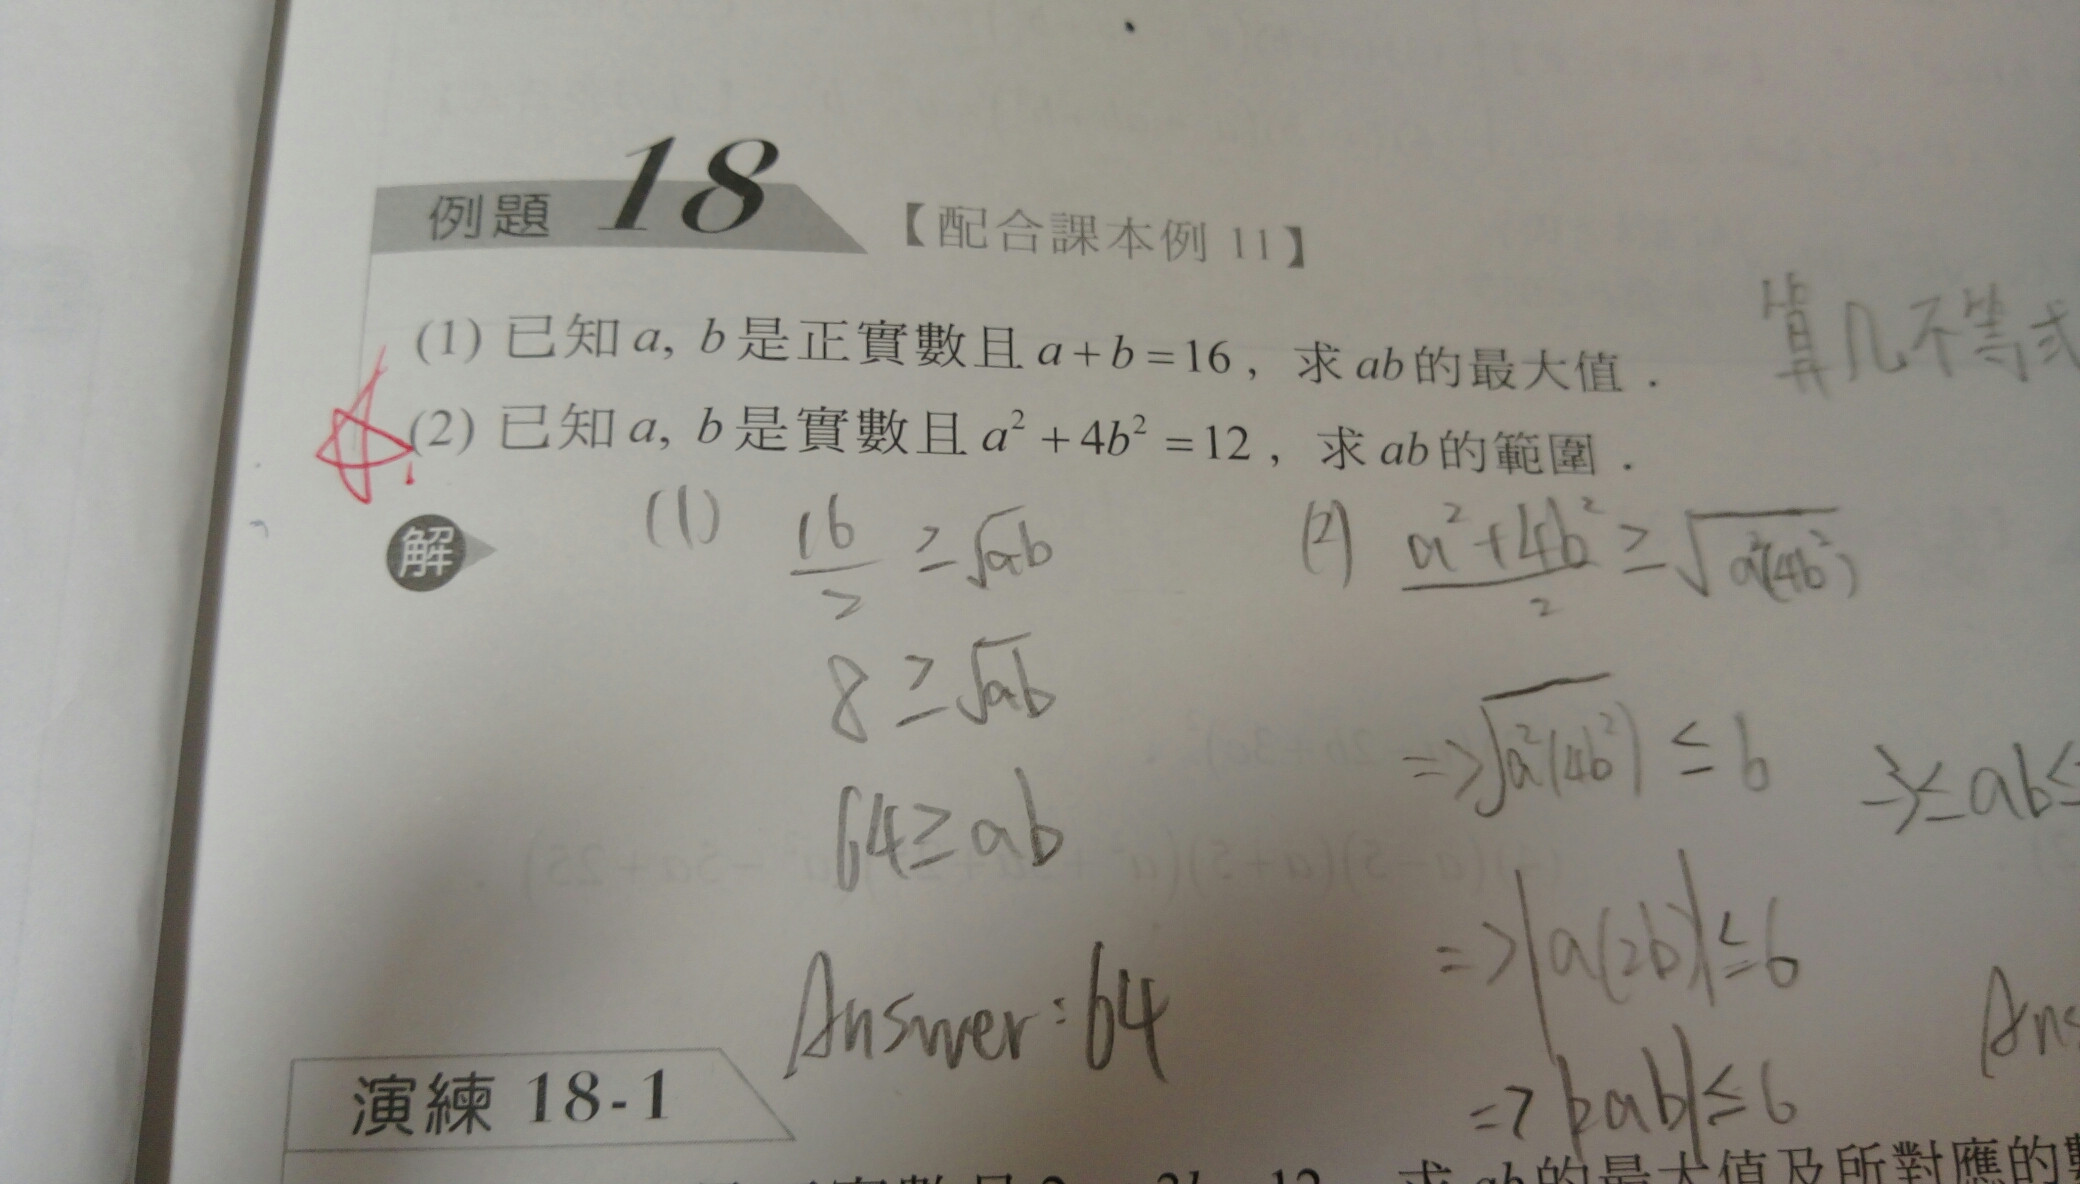 例題 18 【配合課本例 11】
(1) 已知 a, b 是正實數且 a + b = 16, 求 ab 的最大值.
算几不等式
(2) 已知 a, b 是實數且 a² + 4b² = 12, 求 ab 的範圍.
解
(1) 16/2 ≥ √ab
8 ≥ √ab
64 ≥ ab
Answer: 64
(2) (a² + 4b²)/2 ≥ √(a²(4b²))
=> √(a²(4b²)) ≤ 6
=> |a(2b)| ≤ 6
=> |2ab| ≤ 6
-3 ≤ ab ≤
Ans
演練 18-1
求 ab 的最大值及所對應的